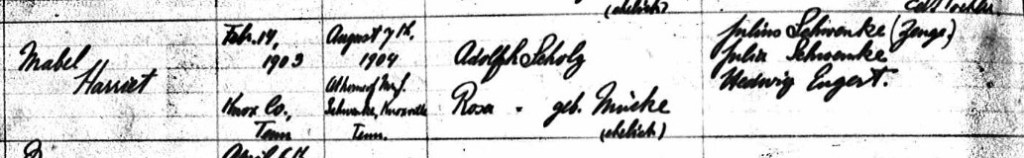 (ehelich)
Mabel
Harriet
Feb. 14,
1903
Knox Co.,
Tenn
August 7th,
1904
At home of Mr J.
Schwenke, Knoxville
Tenn.
Adolph Scholz
Rosa " geb. Mücke
(ehelich)
Julius Schwenke (Zeuge)
Julia Schwenke
Hedwig Engert.
April 6th